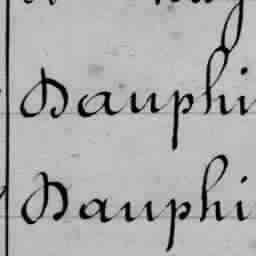 Dauphi
Dauphi